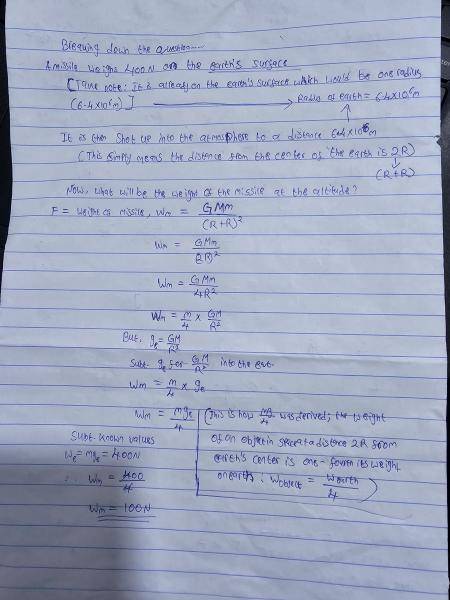 Breaking down the question.....
A missile weighs 400N on the earth's surface
[Take note: It is already on the earth's surface which would be one radius
(6.4x10⁶m)] → Radius of earth = 6.4x10⁶m
It is then shot up into the atmosphere to a distance 6.4x10⁶m
(This simply means the distance from the center of the earth is 2R)
(R+R)
Now, what will be the weight of the missile at the altitude?
F = weight of missile, Wm = GMm/(R+R)²
Wm = GMm/(2R)²
Wm = GMm/4R²
Wm = m/4 x GM/R²
But, ge = GM/R²
Subt. ge for GM/R² into the eqt.
Wm = m/4 x ge
Wm = mge/4
Subt. known values
We = mge = 400N
∴ Wm = 400/4
Wm = 100N
(This is how mg/4 was derived; the weight
of an object in space at a distance 2R from
earth's center is one-fourth its weight
on earth: Wobject = Wearth/4)